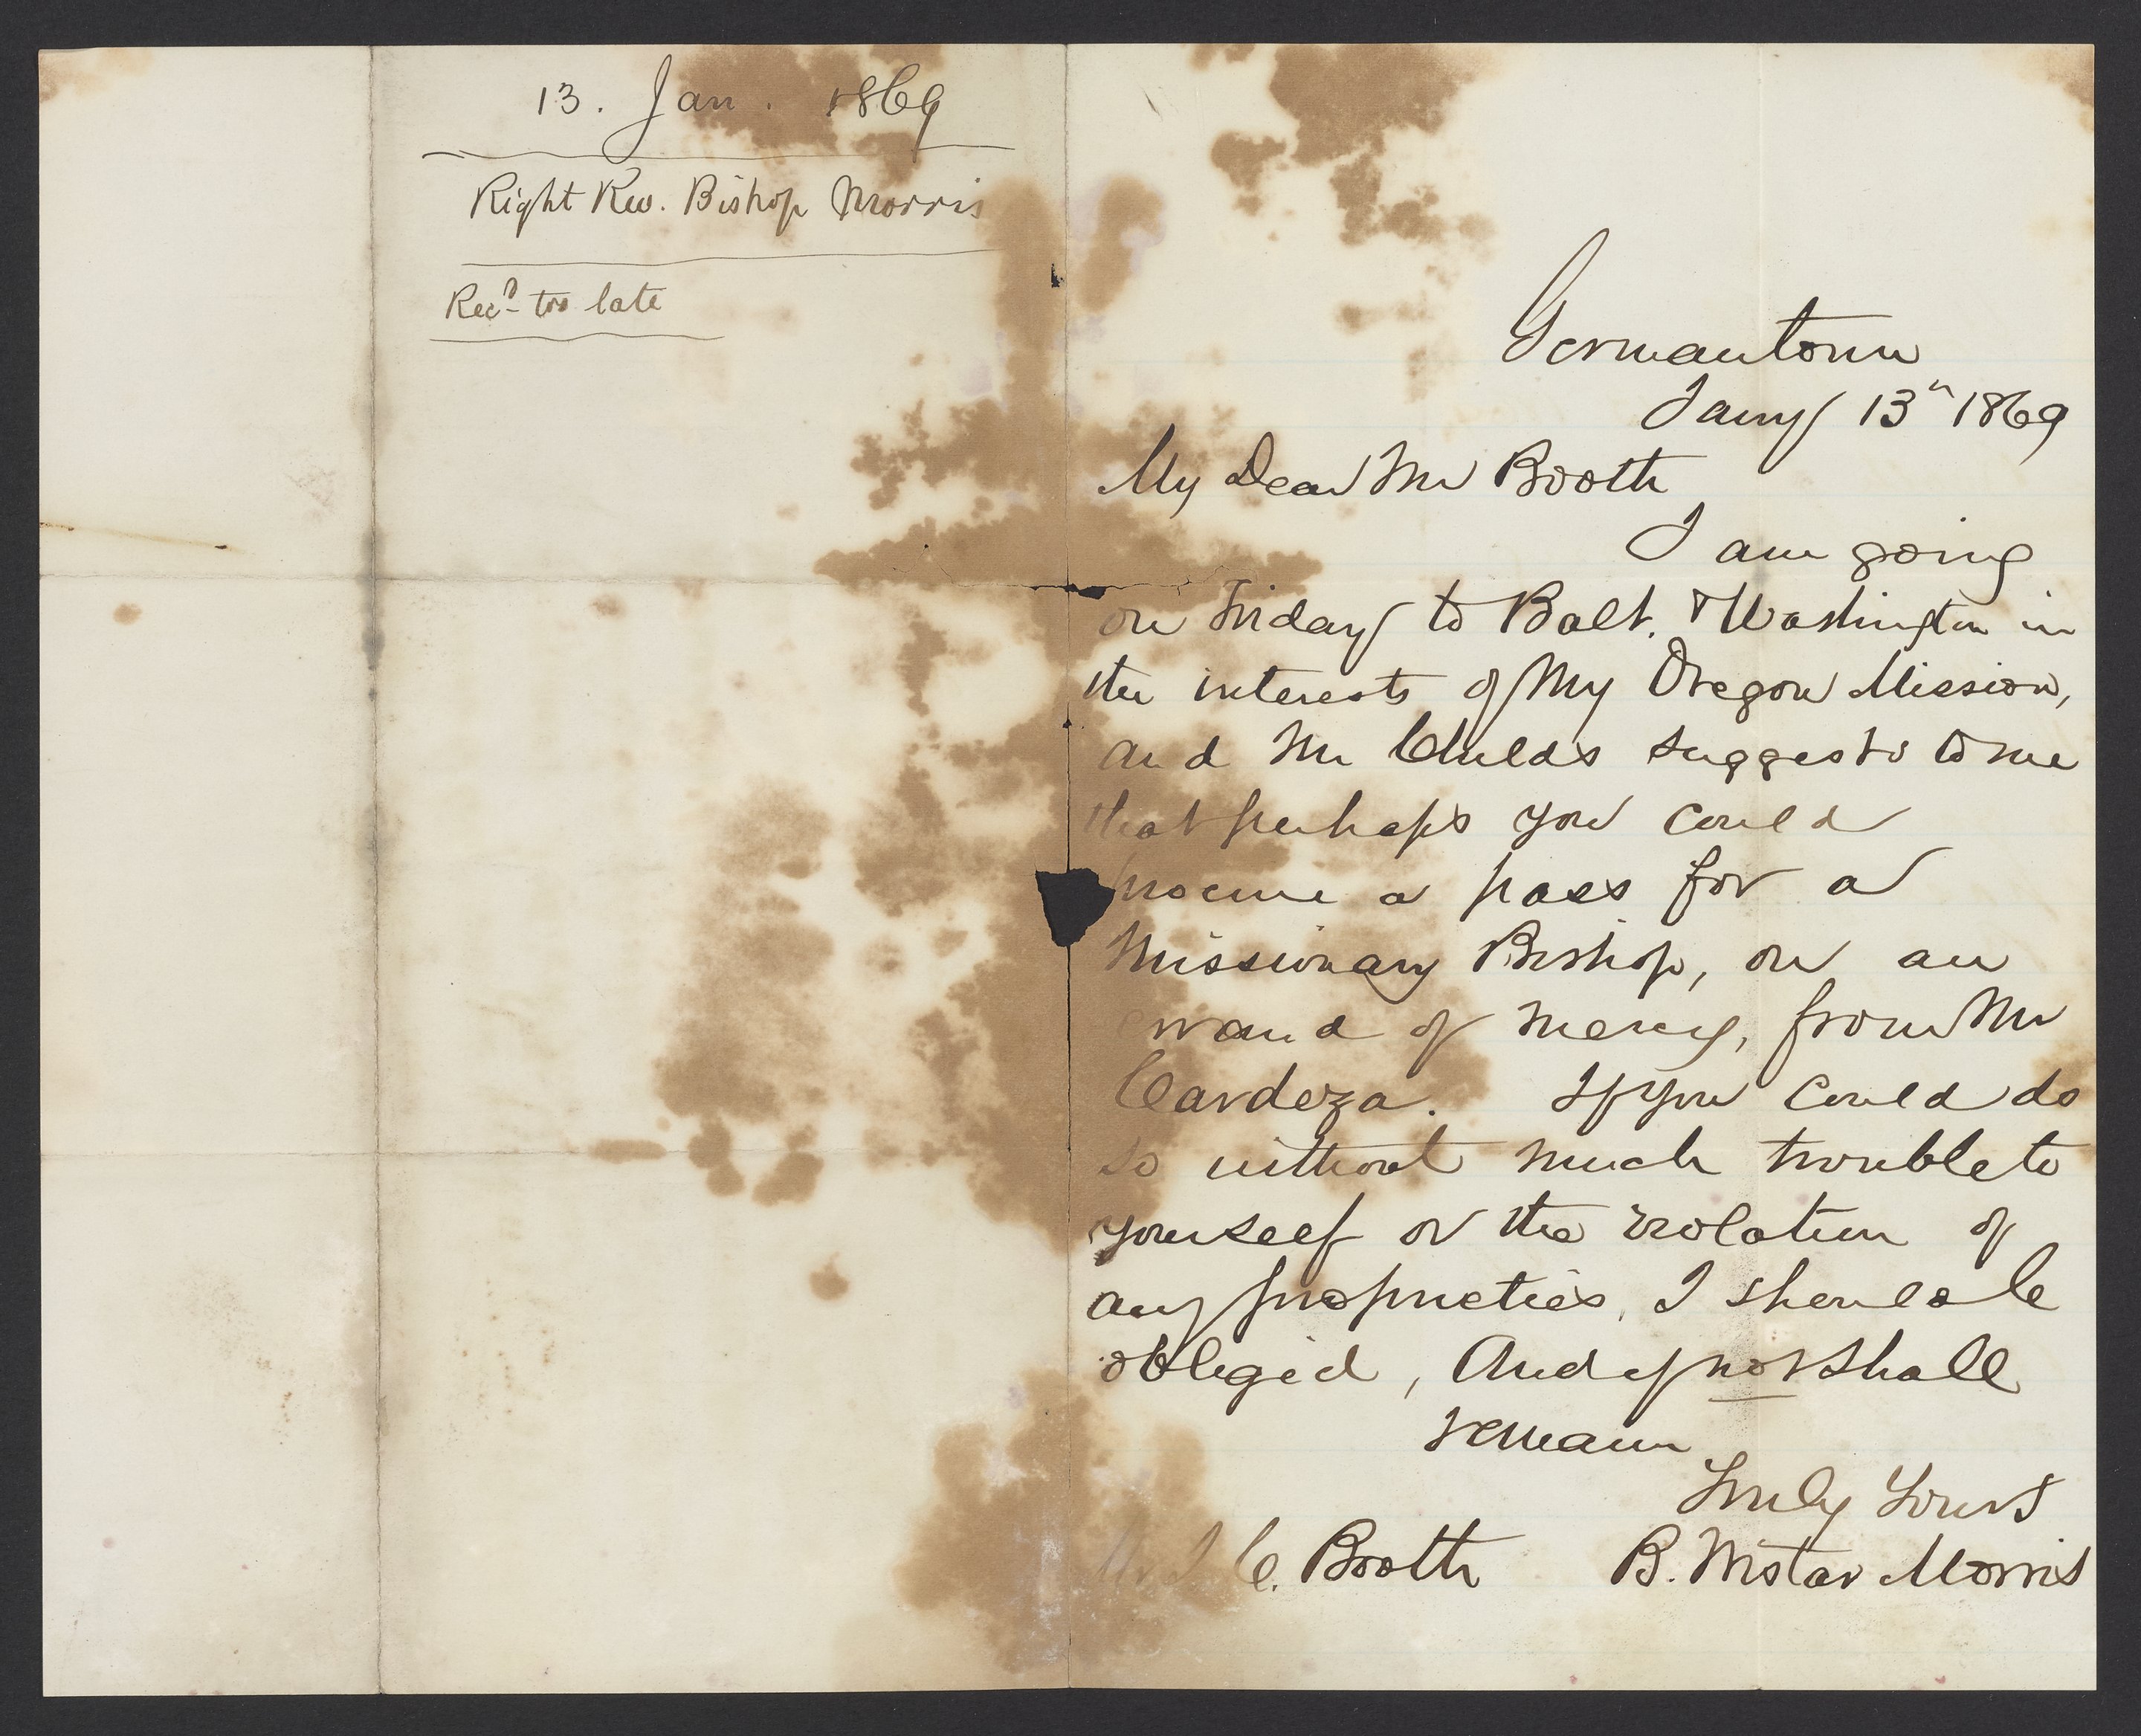 13. Jan. 1869
Right Rev. Bishop Morris
Recd. too late
Germantown
Jany 13th 1869
My Dear Mr Booth
I am going
on Friday to Balt. & Washington in
the interests of My Oregon Mission,
and Mr Childs suggests to me
that perhaps you could
procure a pass for a
Missionary Bishop, on an
errand of mercy, from Mr
Cardeza. If you could do
so without much trouble to
yourself or the violation of
any proprieties, I should be
obliged, And if not shall
remain
Truly Yours
Mr J. C. Booth B. Wistar Morris